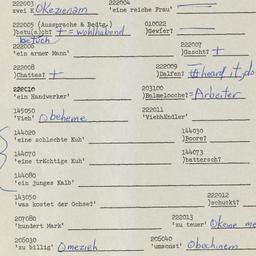 222003 222004
zwei K Okezienam 'eine reiche Frau'
222005 (Aussprache & Bedtg.) 010022
⟩betu(a)cht + = wohlhabend ⟩Gewier?
betuch
222006 222007
'ein armer Mann' ⟩Gascht? +
222008 222009
⟩Chattes? + ⟩Dalfen? + heard it, do
222010 203100
'ein Handwerker' ⟩Balmelooche? = Arbeiter
145050 222011
'Vieh' Obeheme 'Viehhändler'
144020 144030
'eine schlechte Kuh' ⟩Boore?
144070 144073
'eine trächtige Kuh' ⟩battersch?
144080
'ein junges Kalb'
143050 222012
'was kostet der Ochse?' ⟩schuckt?
207080 222013
'hundert Mark' 'zu teuer' Okene me
206030 206040
'zu billig' Omezieh 'umsonst' Obechinem